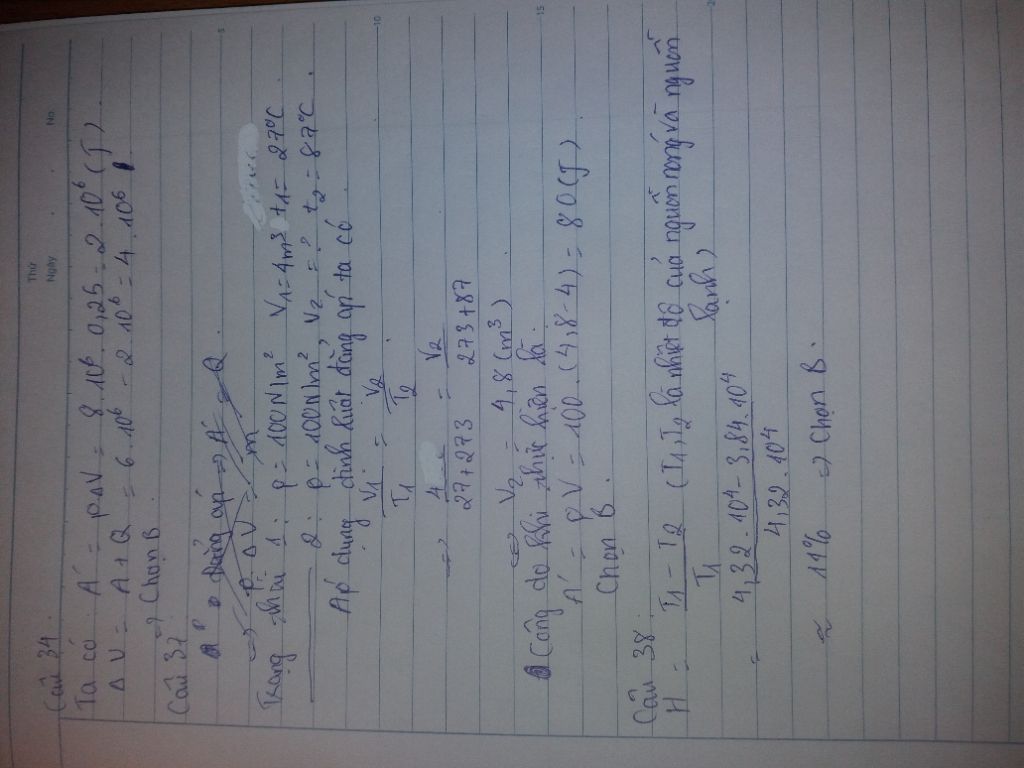 Thứ
Ngày . . No
Câu 34.
Ta có A' = p.ΔV = 8.10⁶.0,25 = 2.10⁶ (J).
ΔV = A + Q = 6.10⁶ - 2.10⁶ = 4.10⁶
=> Chọn B.
Câu 37.
đẳng áp => A' = Q
=> p. ΔV = m
Trạng thái 1: p = 100N/m² V1 = 4m³ t1 = 27°C.
2: p = 100N/m² V2 = ? t2 = 87°C.
Áp dụng định luật đẳng áp ta có
V1/T1 = V2/T2.
=> 4/(27+273) = V2/(273+87)
<=> V2 = 4,8 (m³)
Công do khí thực hiện là.
A' = p.V = 100.(4,8-4) = 80(J)
Chọn B.
Câu 38.
H = (T1 - T2)/T1 (T1, T2 là nhiệt độ của nguồn nóng và nguồn
lạnh)
= (4,32.10⁴ - 3,84.10⁴)/(4,32.10⁴)
≈ 11% => Chọn B.
5
10
15